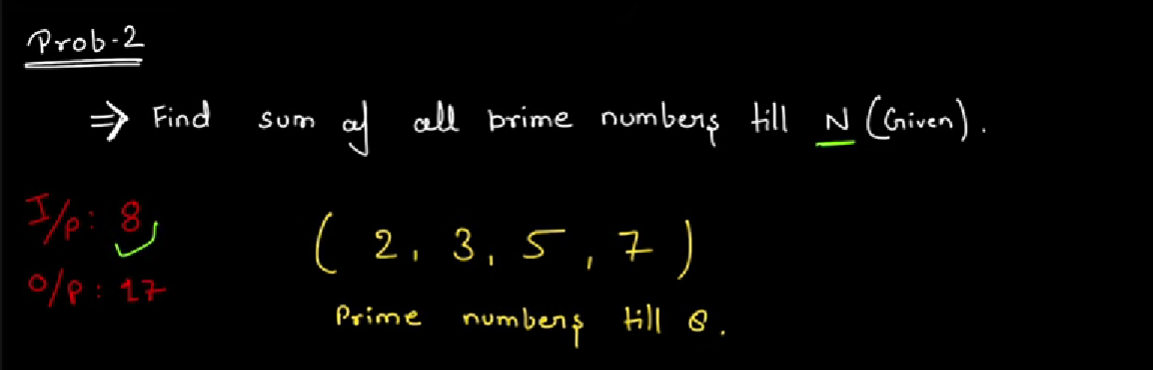 Prob-2
⇒ Find sum of all prime numbers till N (Given).
I/p: 8
( 2, 3, 5, 7 )
O/p: 17
Prime numbers till 8.